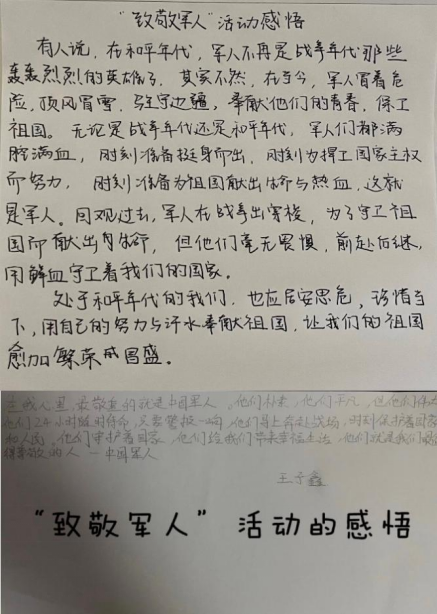 “致敬军人”活动感悟
有人说，在和平年代，军人不再是战争年代那些
轰轰烈烈的英雄了，其实不然，在至今，军人冒着危
险，顶风冒雪，驻守边疆，奉献他们的青春，保卫
祖国。无论是战争年代还是和平年代，军人们都满
腔满血，时刻准备挺身而出，时刻为捍卫国家主权
而努力，时刻准备为祖国献出生命与热血，这就
是军人。回观过去，军人在战争出穿梭，为了守卫祖
国而献出生命，但他们毫无畏惧，前赴后继，
用鲜血守卫着我们的国家。
处于和平年代的我们，也应居安思危，珍惜当
下，用自己的努力与汗水奉献祖国，让我们的祖国
愈加繁荣昌盛。
在我心里，最敬重的就是中国军人，他们朴素，他们平凡，但他们伟大
他们24小时随时待命，只要警报一响，他们马上奔赴战场，时刻保护着国家
和人民，他们守护着国家，他们给我们带来幸福生活，他们就是我们最
得尊敬的人—中国军人
王子鑫
“致敬军人”活动的感悟